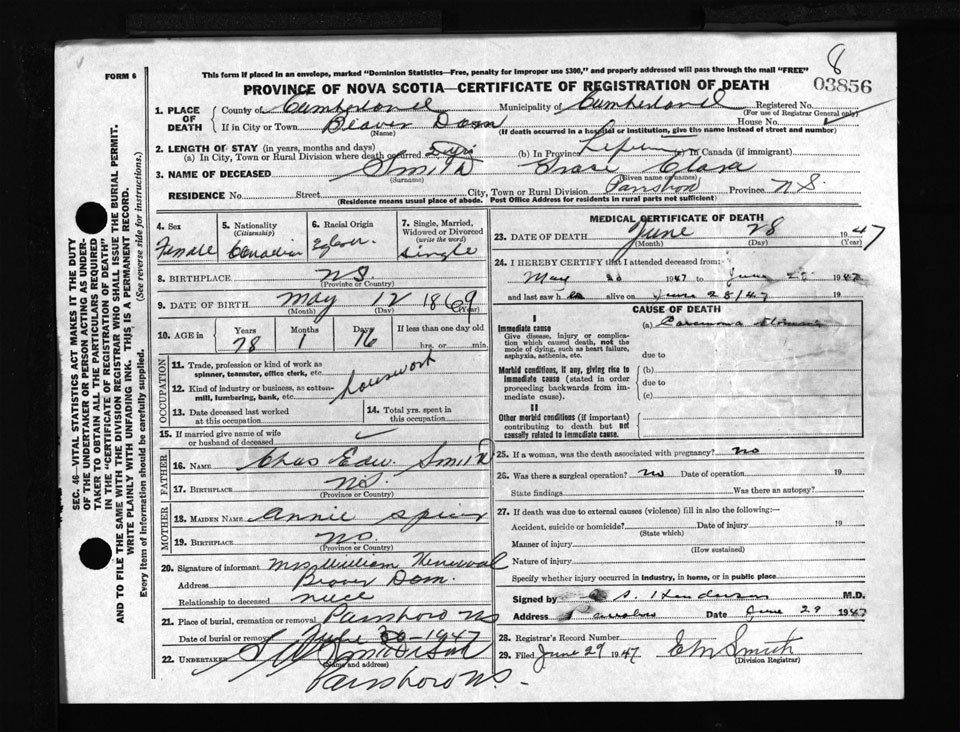 8
FORM 6
This form if placed in an envelope, marked "Dominion Statistics—Free, penalty for improper use $300," and properly addressed will pass through the mail "FREE"
03856
PROVINCE OF NOVA SCOTIA—CERTIFICATE OF REGISTRATION OF DEATH
1. PLACE OF DEATH
County of Cumberland Municipality of Cumberland Registered No.
(For use of Registrar General only)
If in City or Town Beaver Dam House No.
(Name) (If death occurred in a hospital or institution, give the name instead of street and number)
2. LENGTH OF STAY (in years, months and days)
(a) In City, Town or Rural Division where death occurred (b) In Province (c) In Canada (if immigrant)
3. NAME OF DECEASED Smith Clara
(Surname) (Given name or names)
RESIDENCE No. Street City, Town or Rural Division Province N.S.
(Residence means usual place of abode. Post Office Address for residents in rural parts not sufficient)
4. Sex Female
5. Nationality (Citizenship) Canadian
6. Racial Origin
7. Single, Married, Widowed or Divorced (write the word) Single
8. BIRTHPLACE N.S.
(Province or Country)
9. DATE OF BIRTH May 12 1869
(Month) (Day) (Year)
10. AGE in Years Months Days If less than one day old
78 1 16 hrs. or min.
OCCUPATION
11. Trade, profession or kind of work as spinner, teamster, office clerk, etc. housework
12. Kind of industry or business, as cotton-mill, lumbering, bank, etc.
13. Date deceased last worked at this occupation
14. Total yrs. spent in this occupation
15. If married give name of wife or husband of deceased
FATHER
16. NAME Chas Edw. Smith
17. BIRTHPLACE N.S.
(Province or Country)
MOTHER
18. MAIDEN NAME Annie Spicer
19. BIRTHPLACE N.S.
(Province or Country)
20. Signature of informant Mrs William
Address Beaver Dam.
Relationship to deceased niece
21. Place of burial, cremation or removal Parrsboro NS
Date of burial or removal 30-1947
22. UNDERTAKER
(Name and address)
Parrsboro N.S.
MEDICAL CERTIFICATE OF DEATH
23. DATE OF DEATH June 28 1947
(Month) (Day) (Year)
24. I HEREBY CERTIFY that I attended deceased from:
May 1947 to June 28 1947
and last saw h alive on June 28/47 19
CAUSE OF DEATH
I
Immediate cause
Give disease, injury or complication which caused death, not the mode of dying, such as heart failure, asphyxia, asthenia, etc.
(a) Carcinoma
due to
Morbid conditions, if any, giving rise to immediate cause (stated in order proceeding backwards from immediate cause).
(b)
due to
(c)
II
Other morbid conditions (if important) contributing to death but not causally related to immediate cause.
25. If a woman, was the death associated with pregnancy? No
26. Was there a surgical operation? No Date of operation 19
State findings Was there an autopsy?
27. If death was due to external causes (violence) fill in also the following:—
Accident, suicide or homicide? Date of injury 19
(State which)
Manner of injury
(How sustained)
Nature of injury
Specify whether injury occurred in industry, in home, or in public place
Signed by S. Henderson M.D.
Address Parrsboro Date June 29 1947
28. Registrar's Record Number
29. Filed June 29 1947 Smith
(Division Registrar)
SEC. 46—VITAL STATISTICS ACT MAKES IT THE DUTY
OF THE UNDERTAKER OR PERSON ACTING AS UNDER-
TAKER TO OBTAIN ALL THE PARTICULARS REQUIRED
IN THE "CERTIFICATE OF REGISTRATION OF DEATH"
AND TO FILE THE SAME WITH THE DIVISION REGISTRAR WHO SHALL ISSUE THE BURIAL PERMIT.
WRITE PLAINLY WITH UNFADING INK. THIS IS A PERMANENT RECORD.
Every item of information should be carefully supplied. (See reverse side for instructions.)